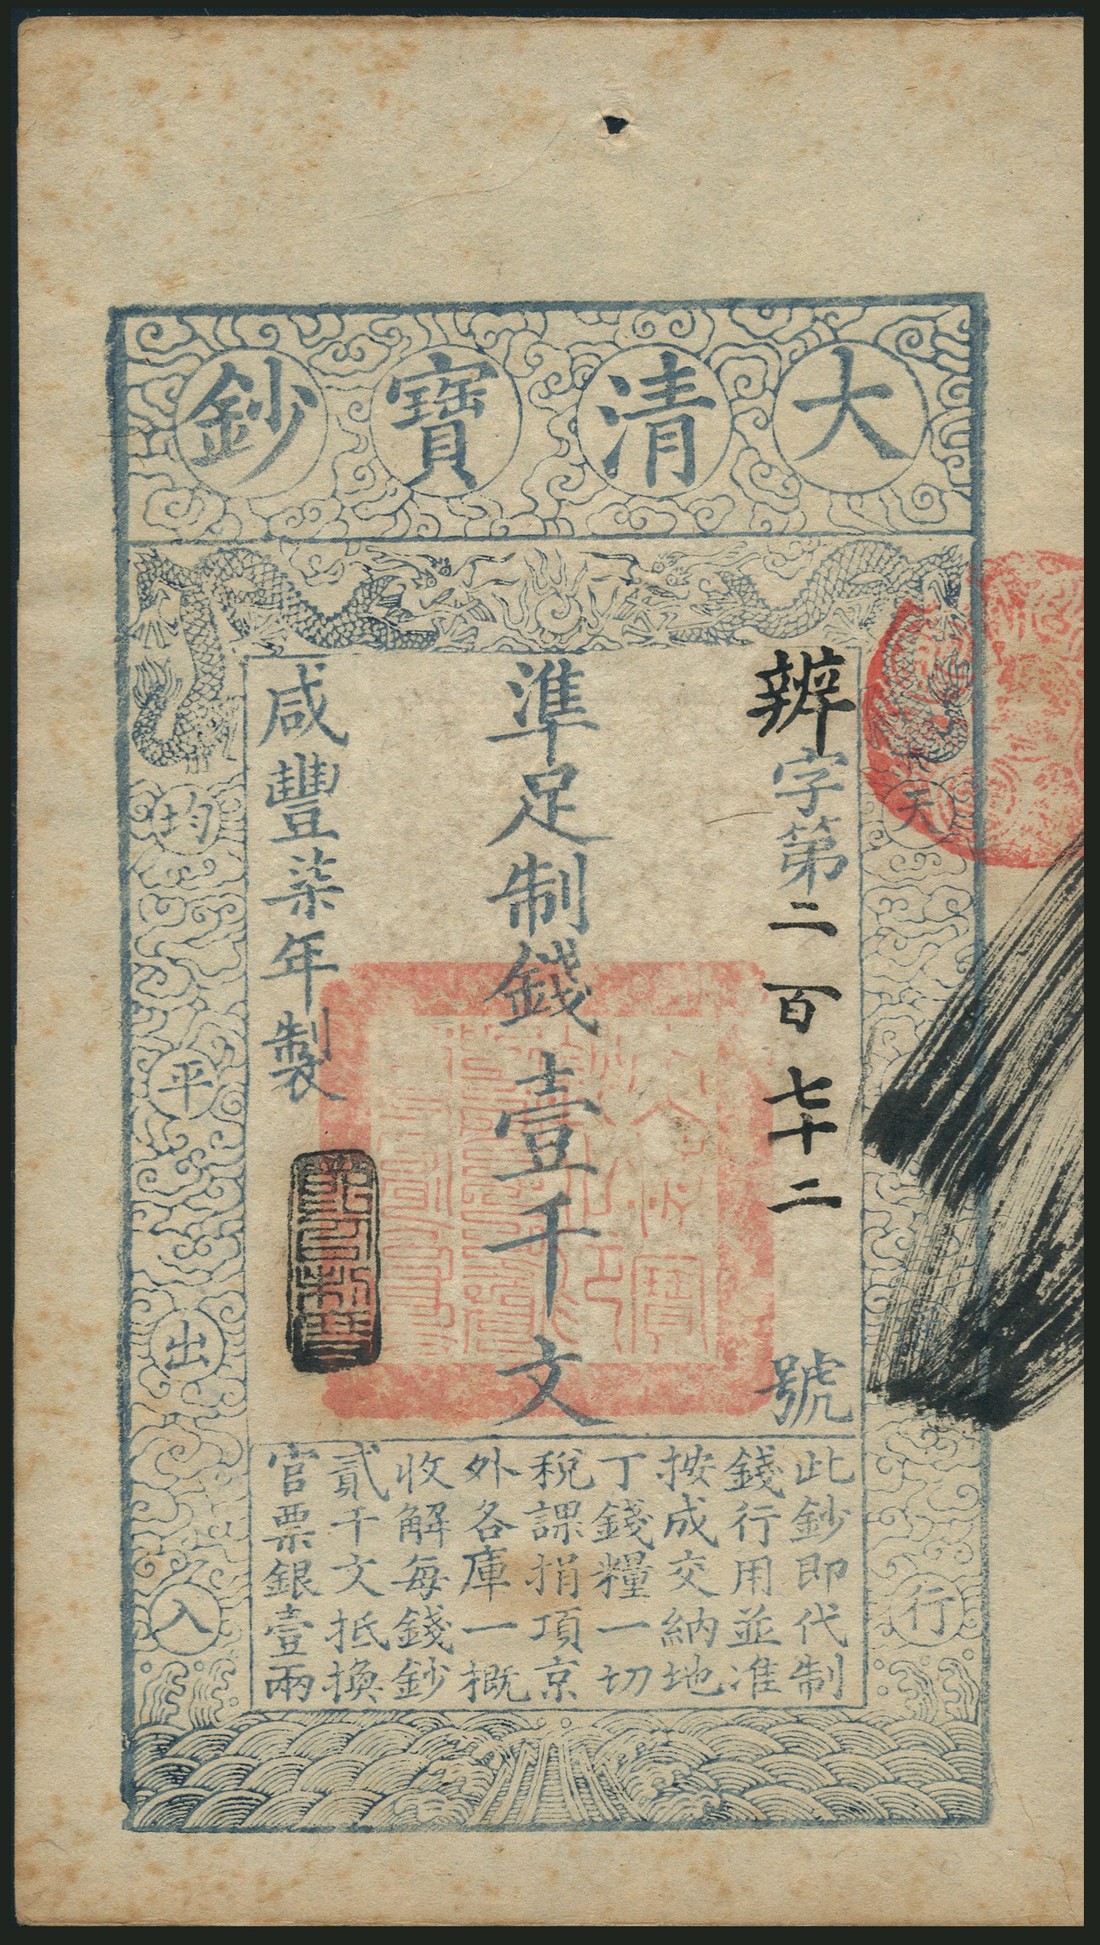 大清寶鈔
天
行
辨字第二百七十二號
準足制錢壹千文
咸豐柒年製
均
平
出
入
此鈔即代制
錢行用並准
按成交納地
丁錢糧一切
稅課捐項京
外各庫一概
收解每錢鈔
貳千文抵換
官票銀壹兩